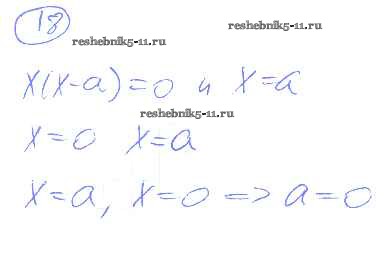 18
reshebnik5-11.ru
reshebnik5-11.ru
x(x-a)=0 и x=a
reshebnik5-11.ru
x=0 x=a
x=a, x=0 => a=0